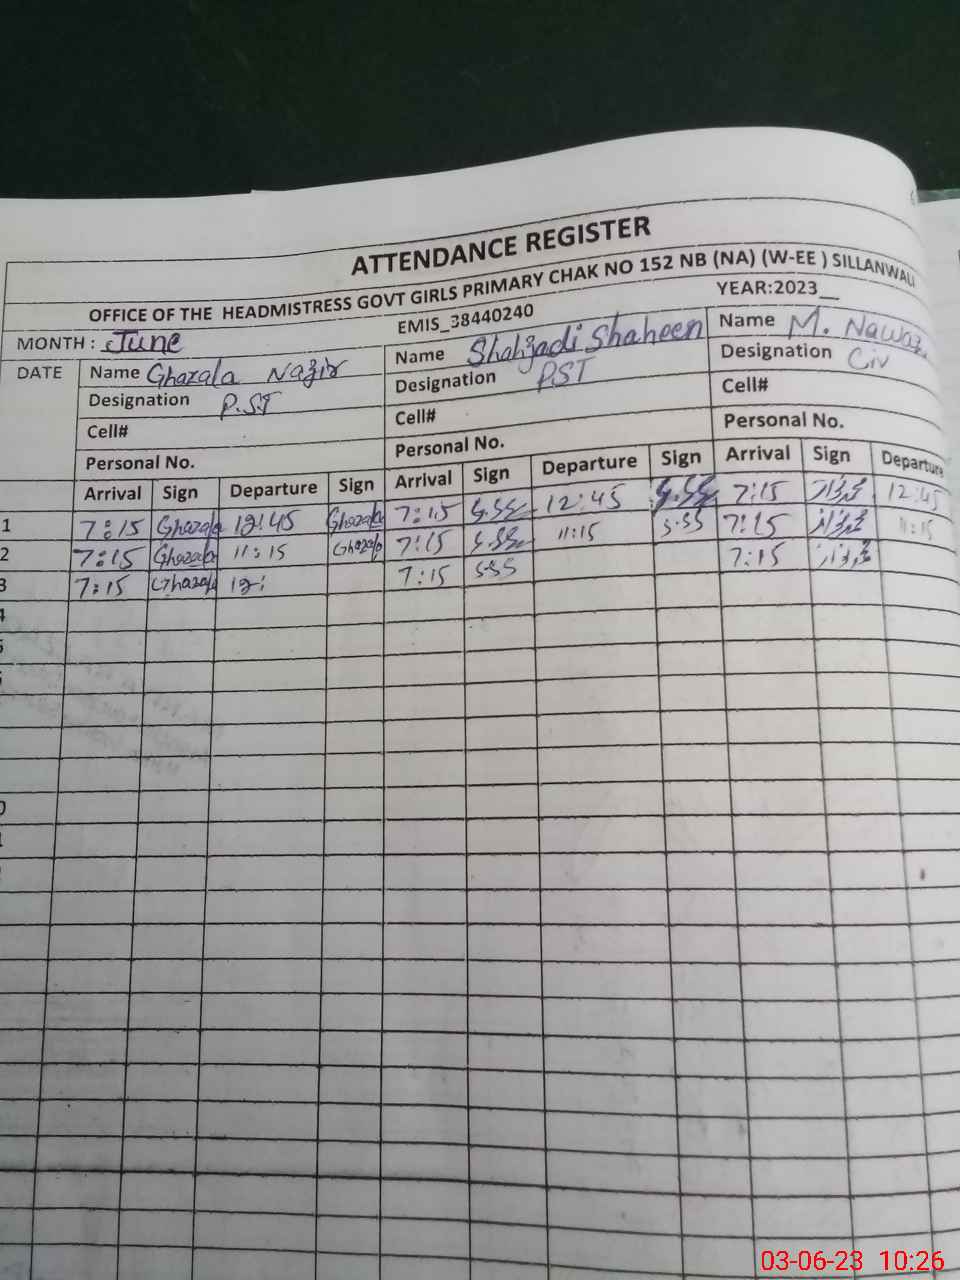 ATTENDANCE REGISTER
OFFICE OF THE HEADMISTRESS GOVT GIRLS PRIMARY CHAK NO 152 NB (NA) (W-EE ) SILLANWALI
MONTH : June EMIS_38440240 YEAR:2023__
DATE Name Ghazala Nazir Name Shahzadi Shaheen Name M. Nawaz
Designation P.ST Designation PST Designation Civ
Cell# Cell# Cell#
Personal No. Personal No. Personal No.
Arrival Sign Departure Sign Arrival Sign Departure Sign Arrival Sign Departure
1 7:15 Ghazala 12:45 Ghazala 7:15 S.SS 12:45 S.SS 7:15 12:45
2 7:15 Ghazala 11:15 Ghazala 7:15 S.SS 11:15 S.SS 7:15 11:15
3 7:15 Ghazala 12: 7:15 SSS 7:15
4
03-06-23 10:26